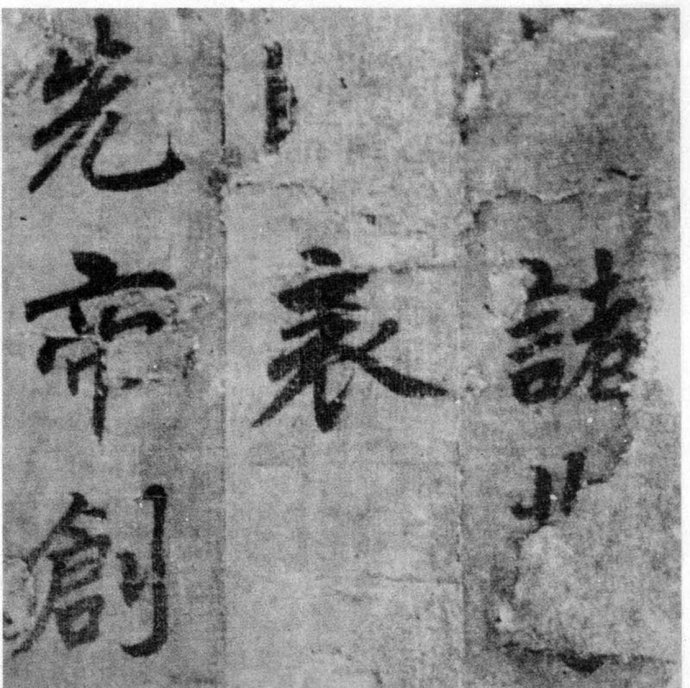 諸
表
先帝創